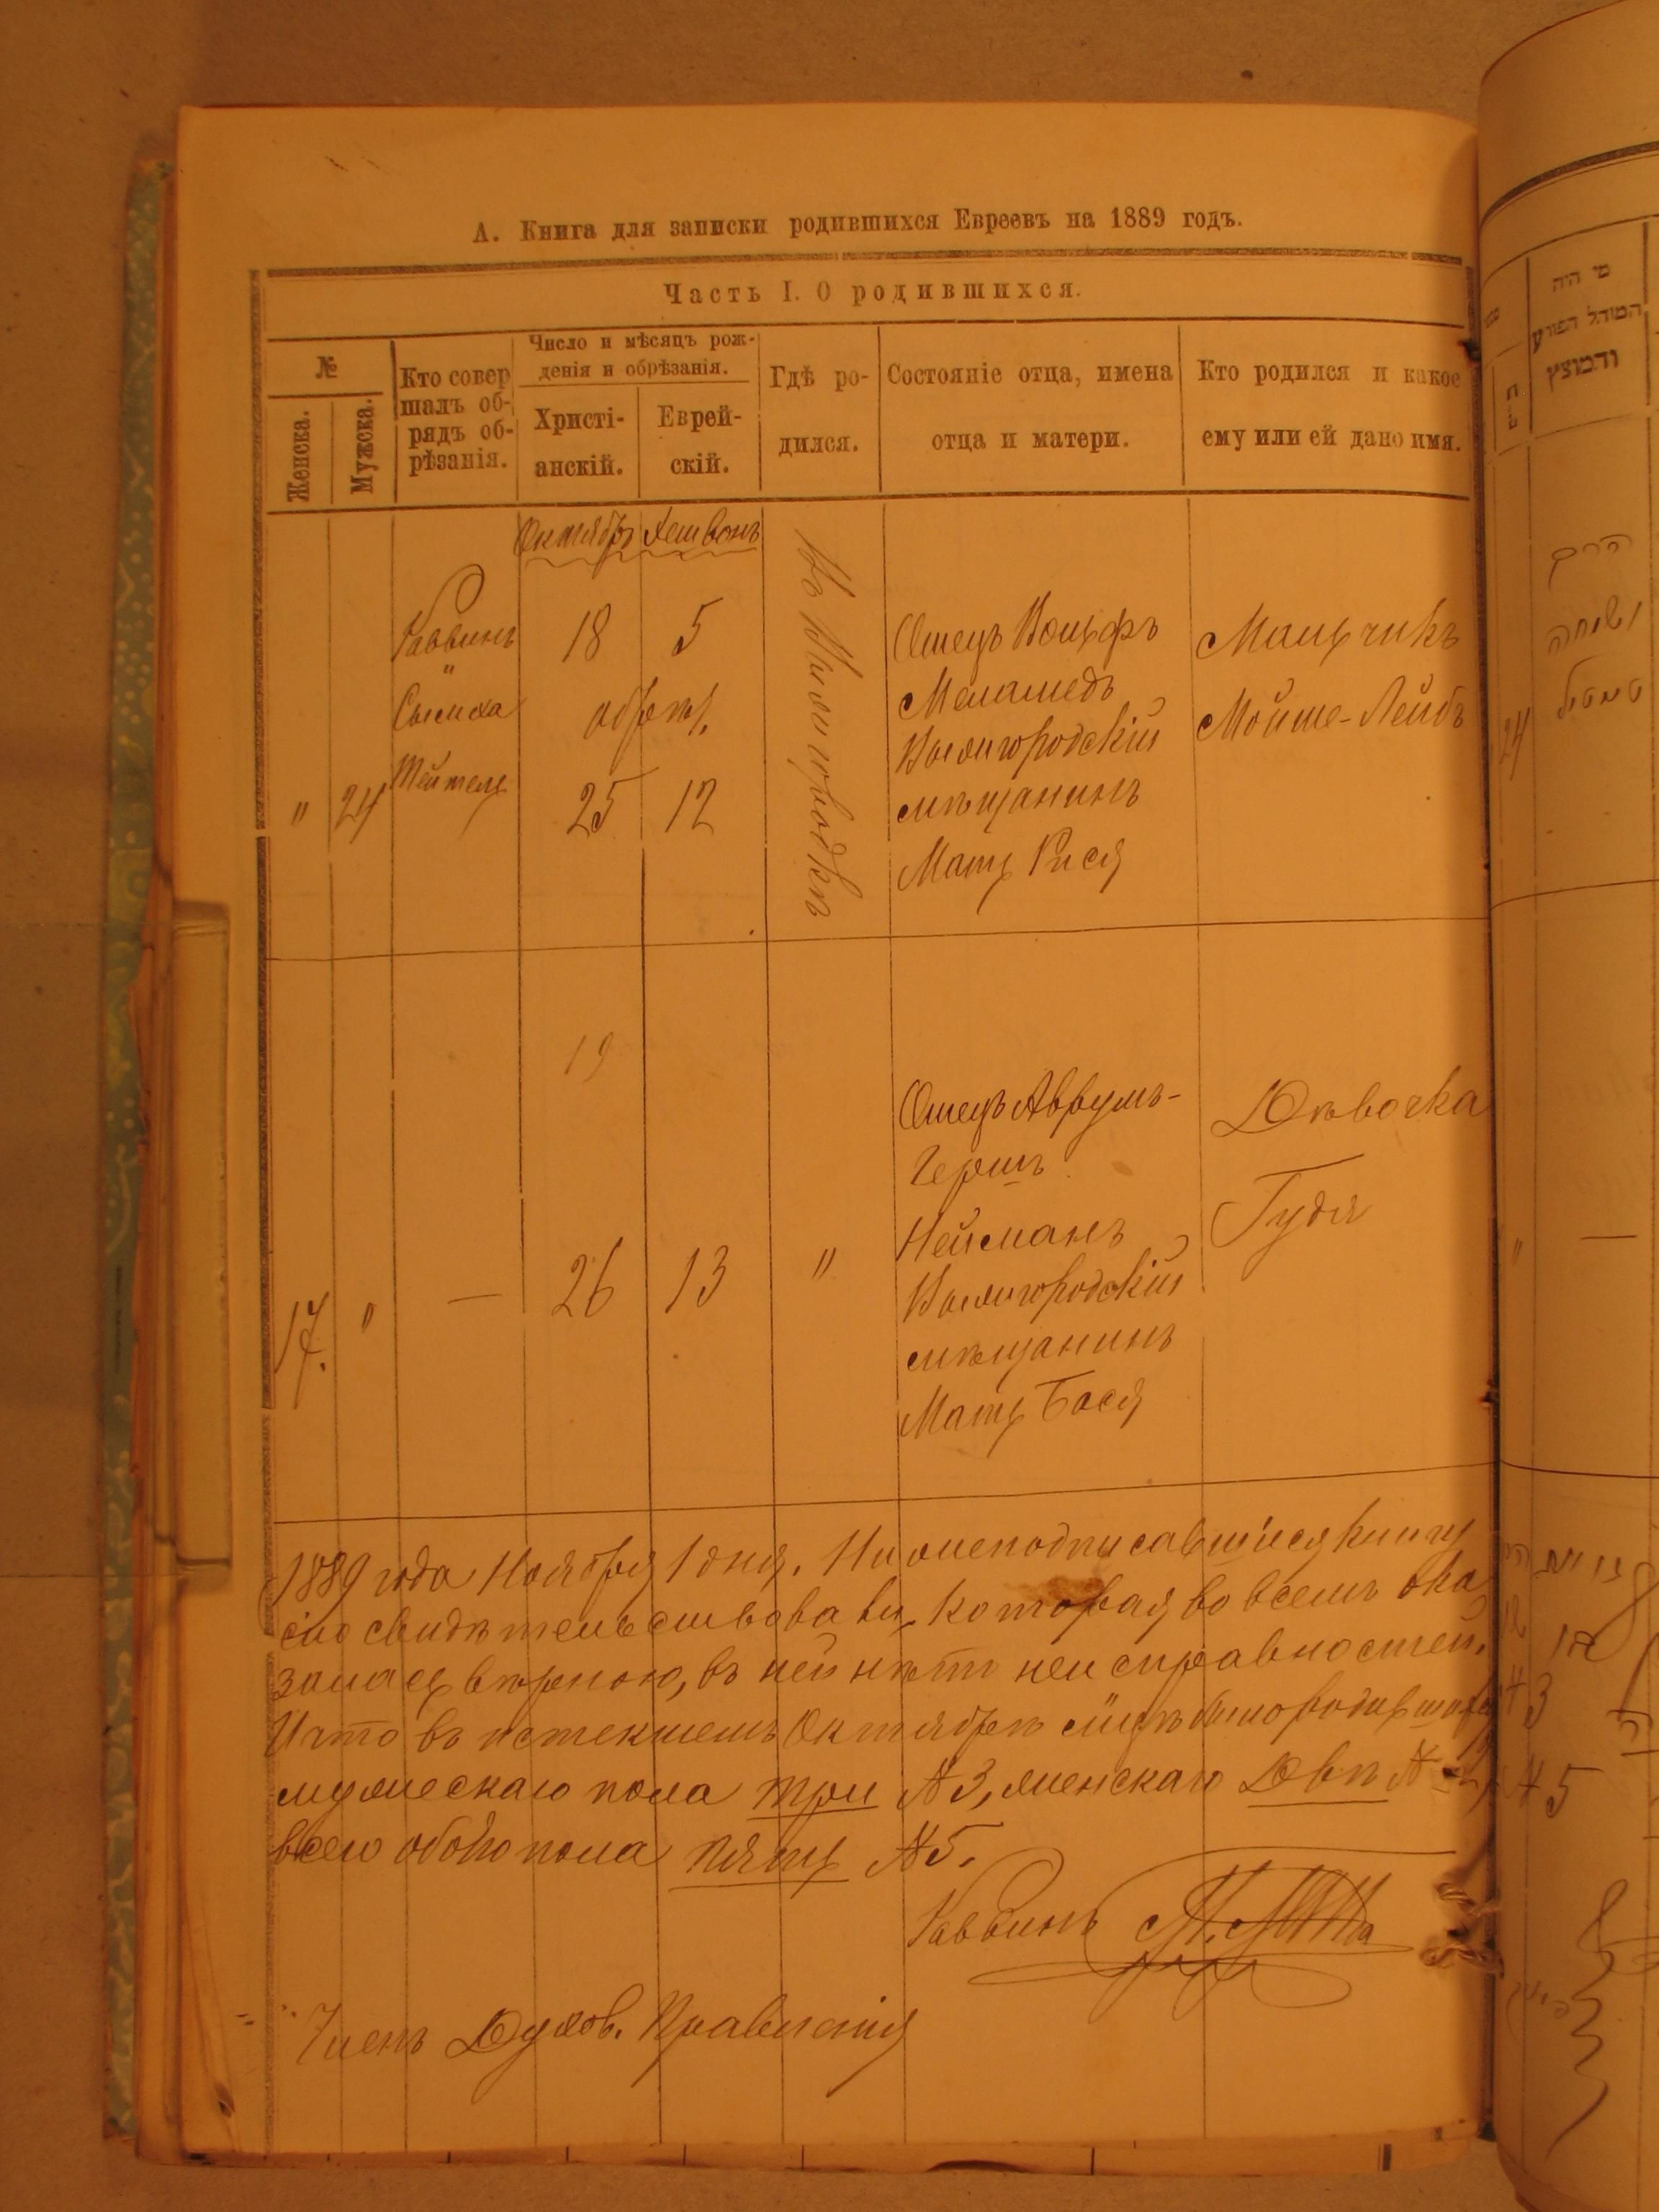 А. Книга для записки родившихся Евреевъ на 1889 годъ.
Часть I. О родившихся.
№
Женска.
Мужска.
Кто совер
шалъ об-
рядъ об-
рѣзанія.
Число и мѣсяцъ рож-
денія и обрѣзанія.
Христі-
анскій.
Еврей-
скій.
Гдѣ ро-
дился.
Состояніе отца, имена
отца и матери.
Кто родился и какое
ему или ей дано имя.
Октябрь Хешвонъ
"
24
Раввинъ
"
Сымха
Тейтель
18 5
обрѣз.
25 12
Отецъ
Меламедъ
Вышгородскій
мѣщанинъ
Мать Рися
Мальчикъ
Мойше-Лейбъ
19
17.
"
—
26 13
"
Отецъ Аврумъ-
Гершъ
Нейманъ
Вышгородскій
мѣщанинъ
Мать Бася
Дѣвочка
Гудя
1889 года Ноября 1 дня. Нижеподписавшіеся книгу
сію свидѣтельствовали, которая во всемъ ока
залась вѣрною, въ ней нѣтъ неисправностей,
И что въ истекшемъ Октябрѣ м‑цѣ было родившихся
мужескаго пола три № 3, женскаго Двѣ №
всего обоего пола пять № 5.
Раввинъ
Членъ Духов. Правленія
מי היה
המוהל הפורע
והמוצץ
24
הרב
שמחה
"
—